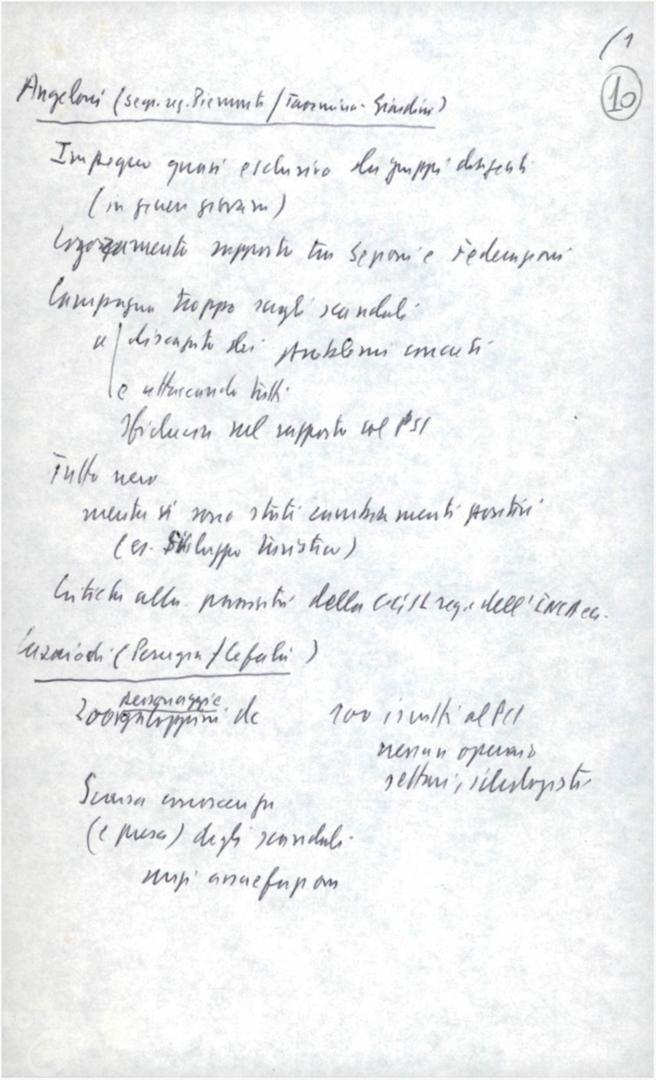 (1
10
Angeloni (segr. reg. Piemonte / Taormina-Giardini)
Impegno quasi esclusivo dei gruppi dirigenti
(in genere giovani)
rapporto tra Sezioni e Federazioni
Campagna troppo sugli scandali
discapito dei problemi concreti
e attaccando tutti
Sfiducia sul rapporto col PSI
Tutto nero
mentre vi sono stati cambiamenti positivi
(es. Sviluppo turistico)
Critiche alla della reg. dell'INCA ecc.
(Perugia / Cefalù)
personaggie
200 galoppini dc
100 iscritti al PCI
nessun operaio
settari,
Scarsa conoscenza
(e presa) degli scandali